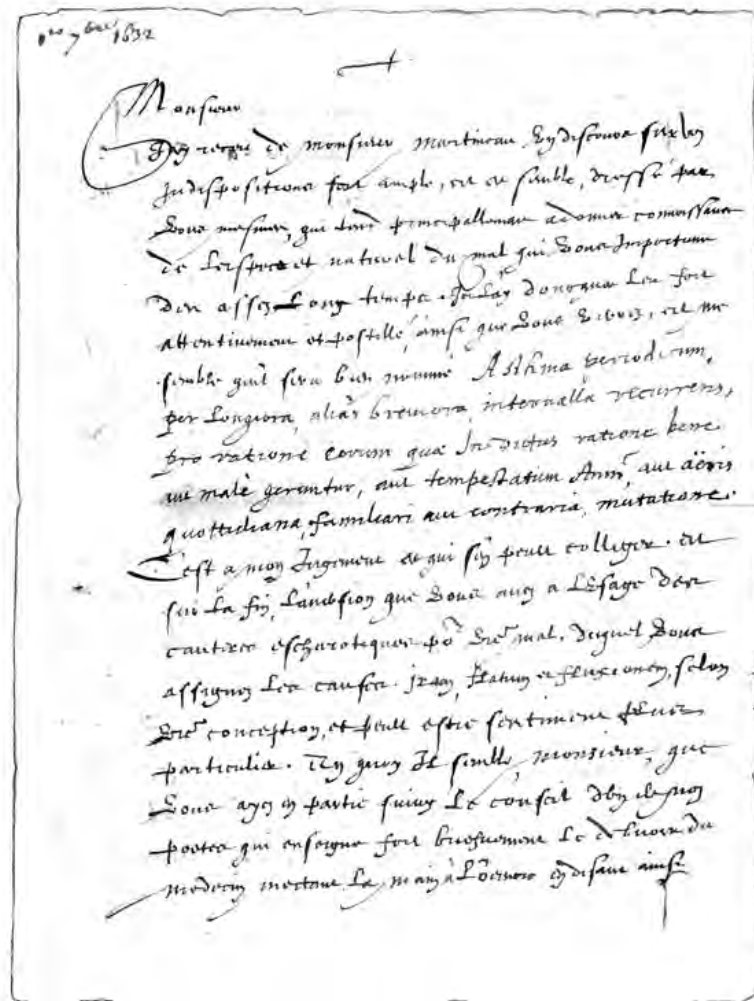 1632
Monsieur
Jay receu de monsieur Martineau un discours sur les
Indispositions fort ample, et ce semble, dressé par
vous mesmes, qui tend principallement a donner connoissance
de lespece et naturel du mal qui vous Importune
des assez Long temps. Je Lay doncques Leu fort
attentivement et postillé, ainsi que vous verrez, et me
semble quil sera bien nommé Asthma periodicum,
per Longiora, alias breviora, intervalla recurrens,
pro ratione eorum quæ In victus ratione bene
aut malè geruntur, aut tempestatum Anni, aut aëris
quottidiana, familiari aut contraria, mutatione.
C'est a mon Jugement ce qui s'en peult colliger. et
sur La fin, L'aversion que vous avez a L'usage des
cauteres escharotiques por vre mal, duquel vous
assignez Les causes. flatum et fluxionem, selon
vre conception, et peult estre sentiment
particulier. En quoy Il semble, monsieur, que
vous ayez en partie suivy Le conseil d'un de nos
poetes qui enseigne fort briefvement Le debvoir du
medecin mectant La main à L'oeuvre en disant ainsi